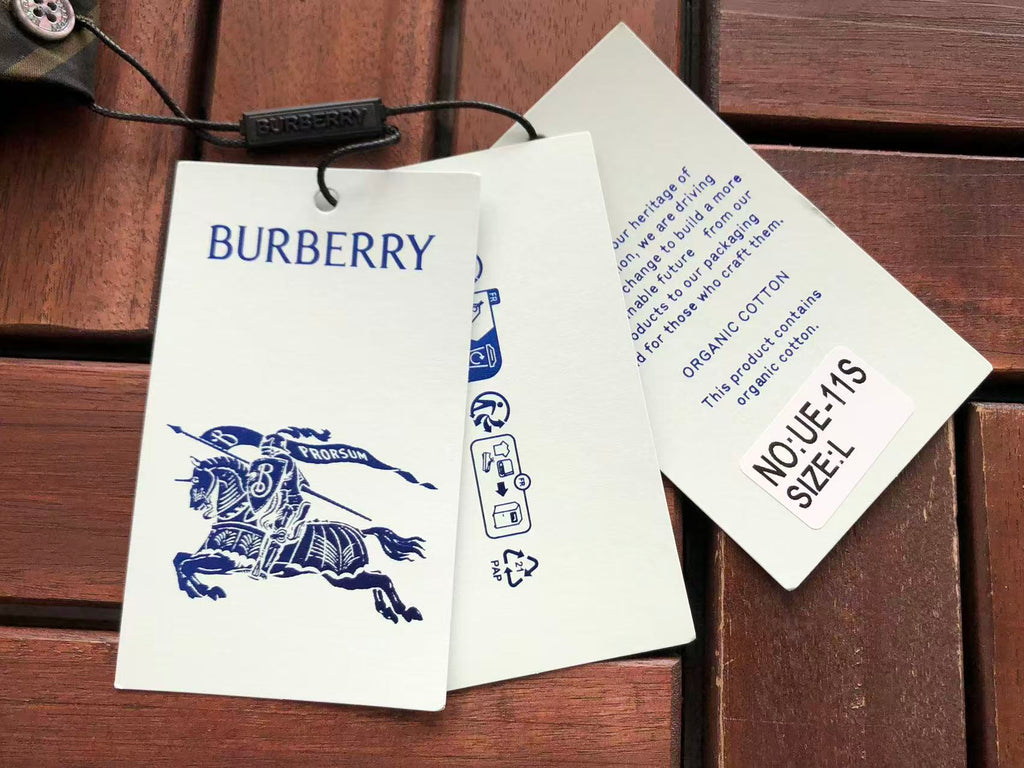 BURBERRY
BURBERRY
B PRORSUM
B
FR
FR
21
PAP
our heritage of
we are driving
change to build a more
future from our
to our packaging
for those who craft them.
ORGANIC COTTON
This product contains
organic cotton.
NO:UE-11S
SIZE:L